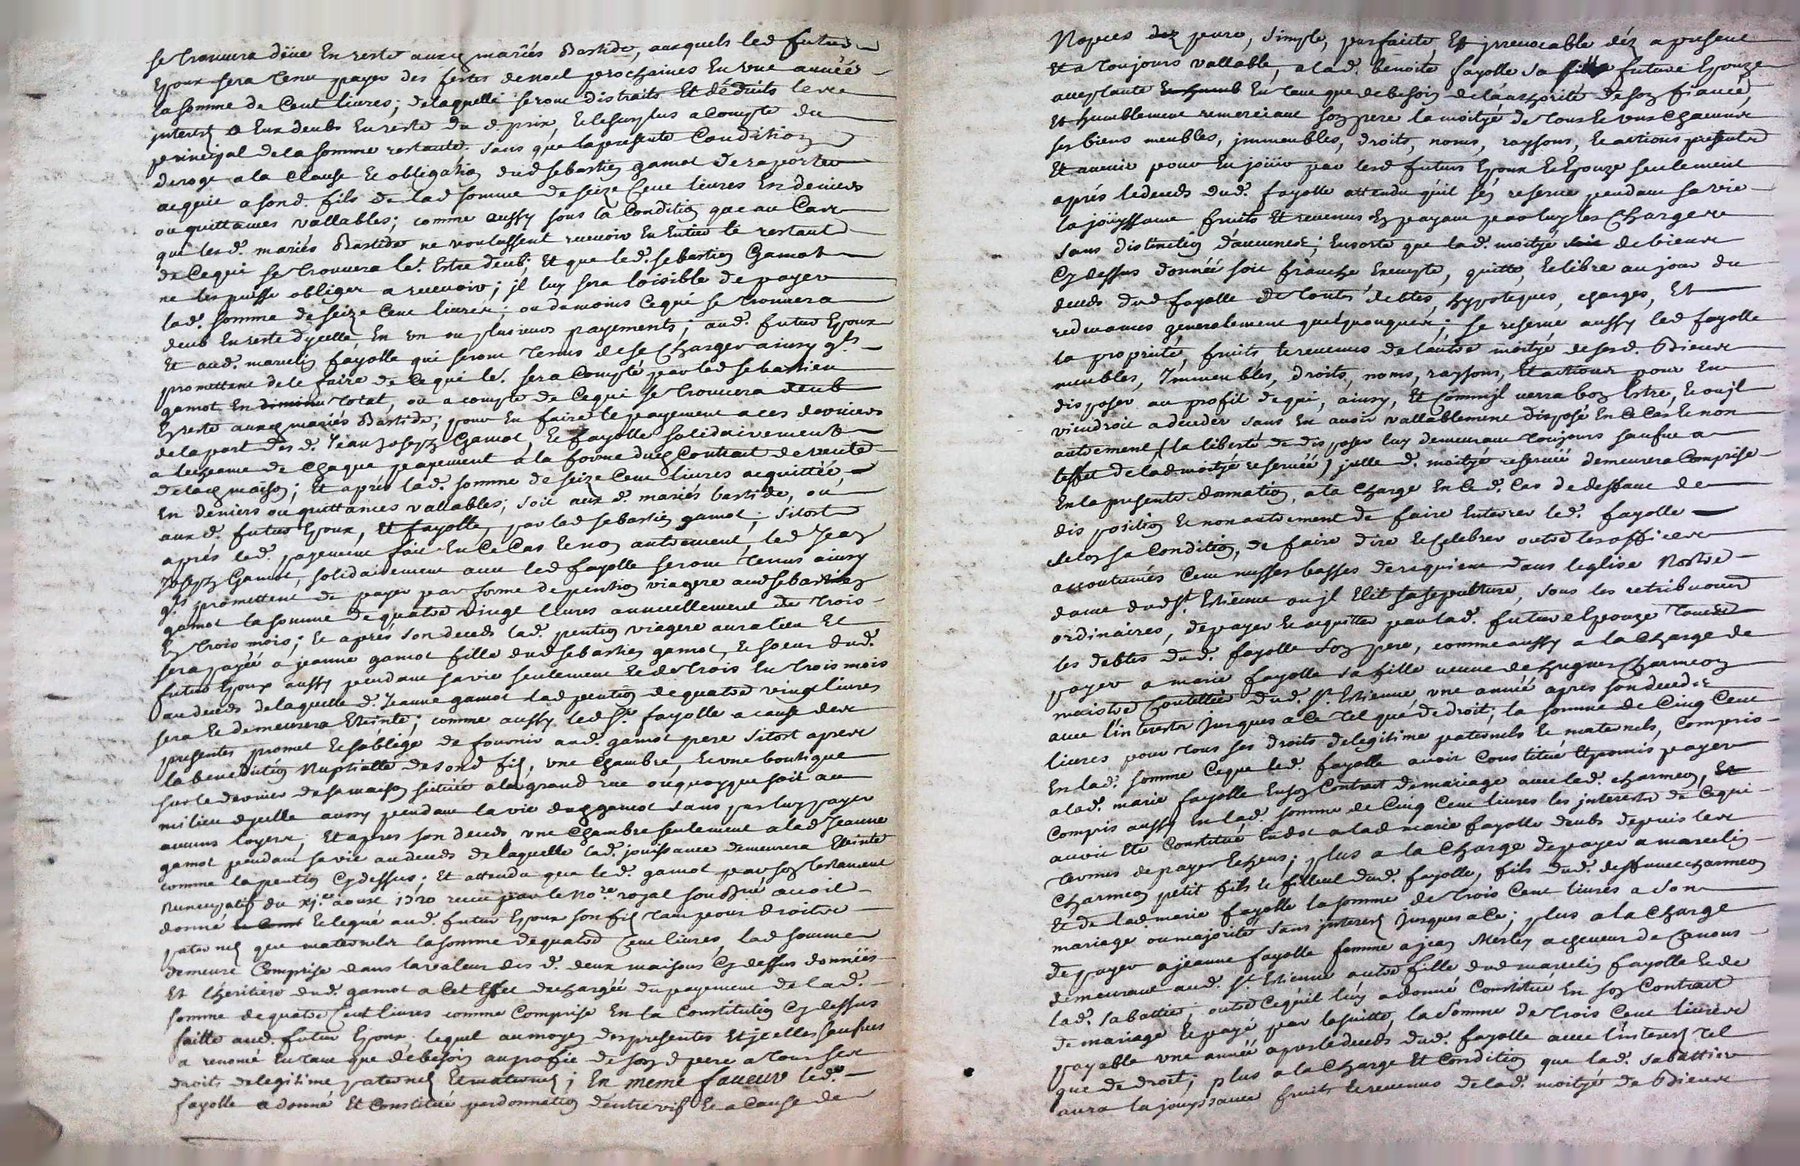 se trouvera düe en reste auxq mariés Bastide, auxquels led futur
Epoux sera tenu payer des festes de noel prochaines en une année
la somme de Cent livres; de laquelle seront distraits Et déduits les
interest d'Eux deubs en reste du d prix, Et le surplus a compte du
principal de la somme restante. sans que la presente Condition
deroge a la Clause Et obligation dud sebastien gamot de raporter
acquit a sond. fils de lad somme de seize Cent livres En deniers
ou quittances vallables; comme aussy sous la Condition que au Cas
que lesd. mariés Bastide ne voulussent recevoir En Entier le restant
de Ce qui se trouvera les. Estre deub, Et que led. sebastien Gamot
ne les puisse obliger a recevoir; jl luy sera loisible de payer
lad. somme de seize Cent livres; ou du moins Ce qui se trouvera
deub En reste d'ycelle, En un ou plusieurs payements, aud. futur Epoux
Et aud. marcelin fayolle qui seront tenus de se Charger ainsy qls
promettent de le faire de Ce qui les. sera Compté par led sebastien
gamot En total, ou a compte de Ce qui se trouvera deub
En reste auxq mariés Bastide; pour En faire le payement a ces derniers
de la part des d. Jean Joseph Gamot, Et fayolle solidairement
a lecheance de Chaque payement a la forme dud Contrat de vente
de lad maison; Et après lad. somme de seize Cent livres acquittée,
En deniers ou quittances vallables, soit aux d. mariés bastide, ou
aux d. futur Epoux, Et fayolle, par led sebastien gamot; sitost
après led. payement fait En Ce Cas Et non autrement, led Jean
Joseph Gamot, solidairement avec led fayolle seront tenus ainsy
qls promettent de payer par forme de pention viagere aud sebastien
gamot la somme de quatre vingt livres annuellement de trois
En trois mois; Et après son deceds lad. pention viagere aura lieu Et
sera payée a jeanne gamot fille dud sebastien gamot, Et soeur dud.
futur Epoux aussy pendant sa vie seulement Et de trois En trois mois
au deceds de laquelle d. Jeanne gamot lad pention de quatre vingt livres
sera Et demeurera Eteinte; comme aussy led Sr. fayolle a cause des
presentes promet Et soblige de fournir aud. gamot pere sitost apres
la benediction Nuptialle de sond fils, une Chambre, Et une boutique
sur le derrier de sa maison située a la grand rue ou quoy que soit au
milieu d'ycelle aussy pendant la vie dud gamot sans par luy payer
aucuns loyers; Et apres son deceds une Chambre seulement a lad Jeanne
gamot pendant sa vie au deceds de laquelle lad. jouissance demeurera Eteinte
comme la pention Cy dessus; Et attendu que led. gamot par son testament
Nuncupatif du xje. aoust 1720 receu par le Nore. royal soussigné avoit
donné Et legué aud. futur Epoux son fils tant pour droits
paternels que maternels la somme de quatre Cent livres, lad somme
demeure Comprise dans la valeur des d. deux maisons Cy dessus données
Et lheritier dud. gamot a Cet Effet dechargée du payement de lad.
somme de quatre Cent livres comme Comprise En la Constitution Cy dessus
faitte aud. futur Epoux, lequel au moyen des presentes Et jcelles sauves
a renoncé En tant que de besoin au profit de sond pere a tous ses
droits de legitime paternels Et maternels; En meme faveur led.
fayolle a donné Et Constitué par donnation d'entre vifs Et a Cause de
Nopces pure, simple, parfaite, Et jrrevocable déz a present
Et a toujours vallable, a lad. benoite fayolle sa fille future Epouze
acceptante En tant que de besoin de lauthorité de son fiancé,
Et humblement remerciant son pere la moityé de tous Et uns Chacuns
ses biens meubles, jmmeubles, droits, noms, raysons, Et actions presents
Et avenir pour En jouir par lesd futurs Epoux Et Epouze seulement
après le deceds dud. fayolle attendu quil sen reserve pendant sa vie
la jouyssance fruits Et revenus En payant par luy les Charges
sans distinction d'aucunes; Ensorte que lad. moityé de biens
Cy dessus donnée soit franche Exempte, quitte, Et libre au jour du
deceds dud fayolle de toutes debtes, hypoteques, charges, Et
redevances généralement quelquonques; se reserve aussy led fayolle
la proprieté, fruits Et revenus de l'autre moityé desesd. Biens
meubles, Immeubles, droits, noms, raysons, Et actions pour En
disposer au profit de qui, ainsy, Et comme jl verra bon Estre, Et ou jl
viendroit a deceder sans En avoir vallablement disposé En Ce Cas Et non
autrement (la liberté de disposer luy demeurant toujours sauve a
leffet de lad moityé reservée) jcelle d. moityé reservée demeurera Comprise
En la presente donnation, a la Charge En Ce d. Cas de deffaut de
disposition Et non autrement de faire Enterrer led. fayolle
selon sa Condition, de faire dire Et Celebrer outre les offices
accoutumés Cent messes basses de requiem dans leglise Nostre
dame dud St. Estienne ou jl Elit sa sepulture, sous les retributions
ordinaires, de payer Et acquitter par lad. future Epouze toutes
les debtes dud. fayolle son pere, comme aussy a la Charge de
payer a marie fayolle sa fille veuve de hugues Charmeon
maistre Coutellier dud. St. Estienne une année après son deceds
avec l'interest jusques a Ce tel que de droit, la somme de Cinq Cent
livres pour tous ses droits de legitime paternels Et maternels, Compris
En lad. somme Ce que led. fayolle avoit Constitué Et promis payer
a lad. marie fayolle En son Contrat de mariage avec led. charmeon, Et
Compris aussy En lad. somme de Cinq Cent livres les interests de Ce qui
avoit Eté Constitué En dot a lad marie fayolle deubs depuis les
termes de payer Echeus; plus a la Charge de payer a marcelin
Charmeon petit fils Et filleul dud. fayolle, fils dud. deffunt charmeon
Et de lad. marie fayolle la somme de trois Cent livres a son
mariage ou majorité sans jnterest jusques a Ce; plus a la Charge
de payer a jeanne fayolle femme a jean Merley acheveur de Canons
demeurant aud. St. Etienne autre fille dud marcelin fayolle Et de
lad. sabattier, outre Ce quil luy a donné Constitué En son Contrat
de mariage Et payé par la suitte, la somme de trois Cent livres
payable une année après le deceds dud. fayolle avec l'interest tel
que de droit; plus a la Charge Et Condition que lad. sabattier
aura la jouyssance fruits Et revenus de lad. moityé de Biens